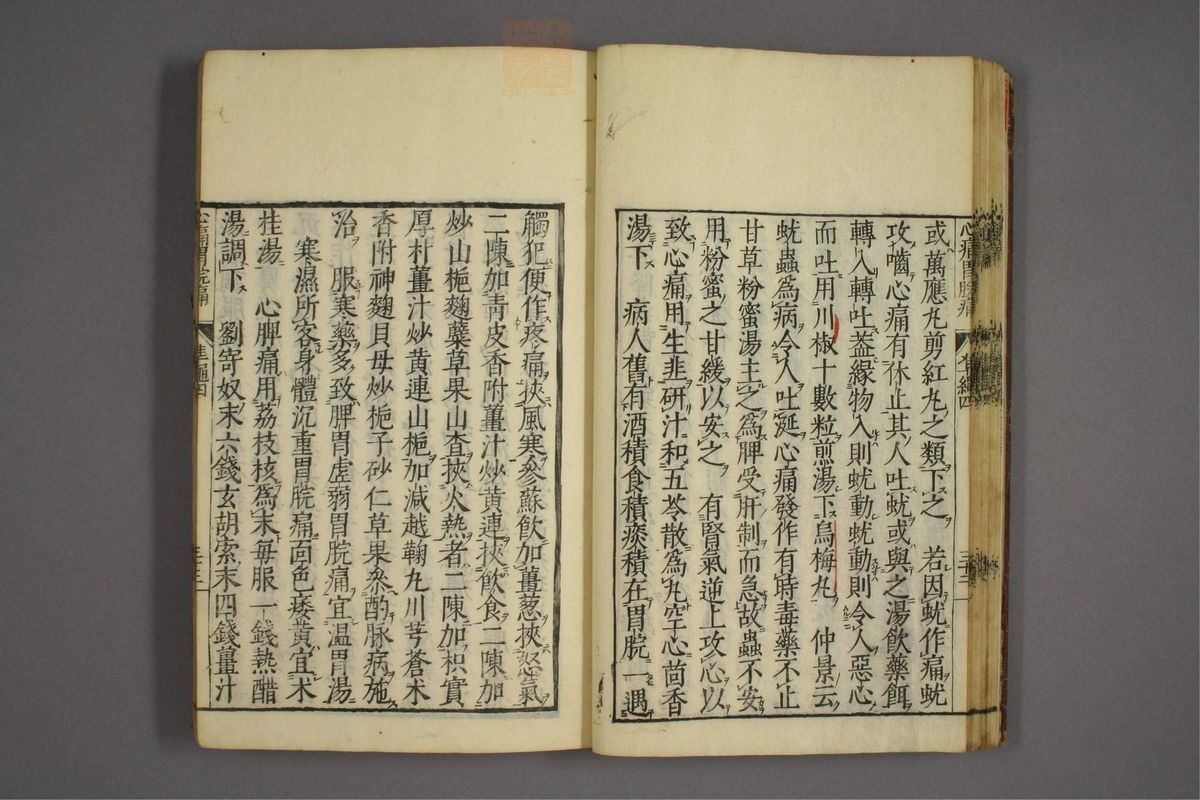 心痛胃脘痛
或萬應丸剪紅丸之類下之　若因蚘作痛蚘
攻嚙心痛有休止其人吐蚘或與之湯飲藥餌
轉入轉吐盖緣物入則蚘動蚘動則令人惡心
而吐用川椒十數粒煎湯下烏梅丸　仲景云
蚘蟲爲病令人吐涎心痛發作有時毒藥不止
甘草粉蜜湯主之爲脾受肝制而急故蟲不安
用粉蜜之甘緩以安之　有腎氣逆上攻心以
致心痛用生韭研汁和五苓散爲丸空心茴香
湯下　病人舊有酒積食積痰積在胃脘一遇
觸犯便作疼痛挾風寒參蘇飲加薑葱挾怒氣
二陳加靑皮香附薑汁炒黄連挾飲食二陳加
炒山梔麴蘗草果山査挾火熱者二陳加枳實
厚朴薑汁炒黄連山梔加減越鞠丸川芎蒼术
香附神麴貝母炒梔子砂仁草果叅酌脉病施
治　服寒藥多致脾胃虚弱胃脘痛宜温胃湯
寒濕所客身體沉重胃脘痛面色痿黄宜术
桂湯　心脾痛用荔枝核爲末毎服一錢熱醋
湯調下　劉寄奴末六錢玄胡索末四錢薑汁
心痛胃脘痛